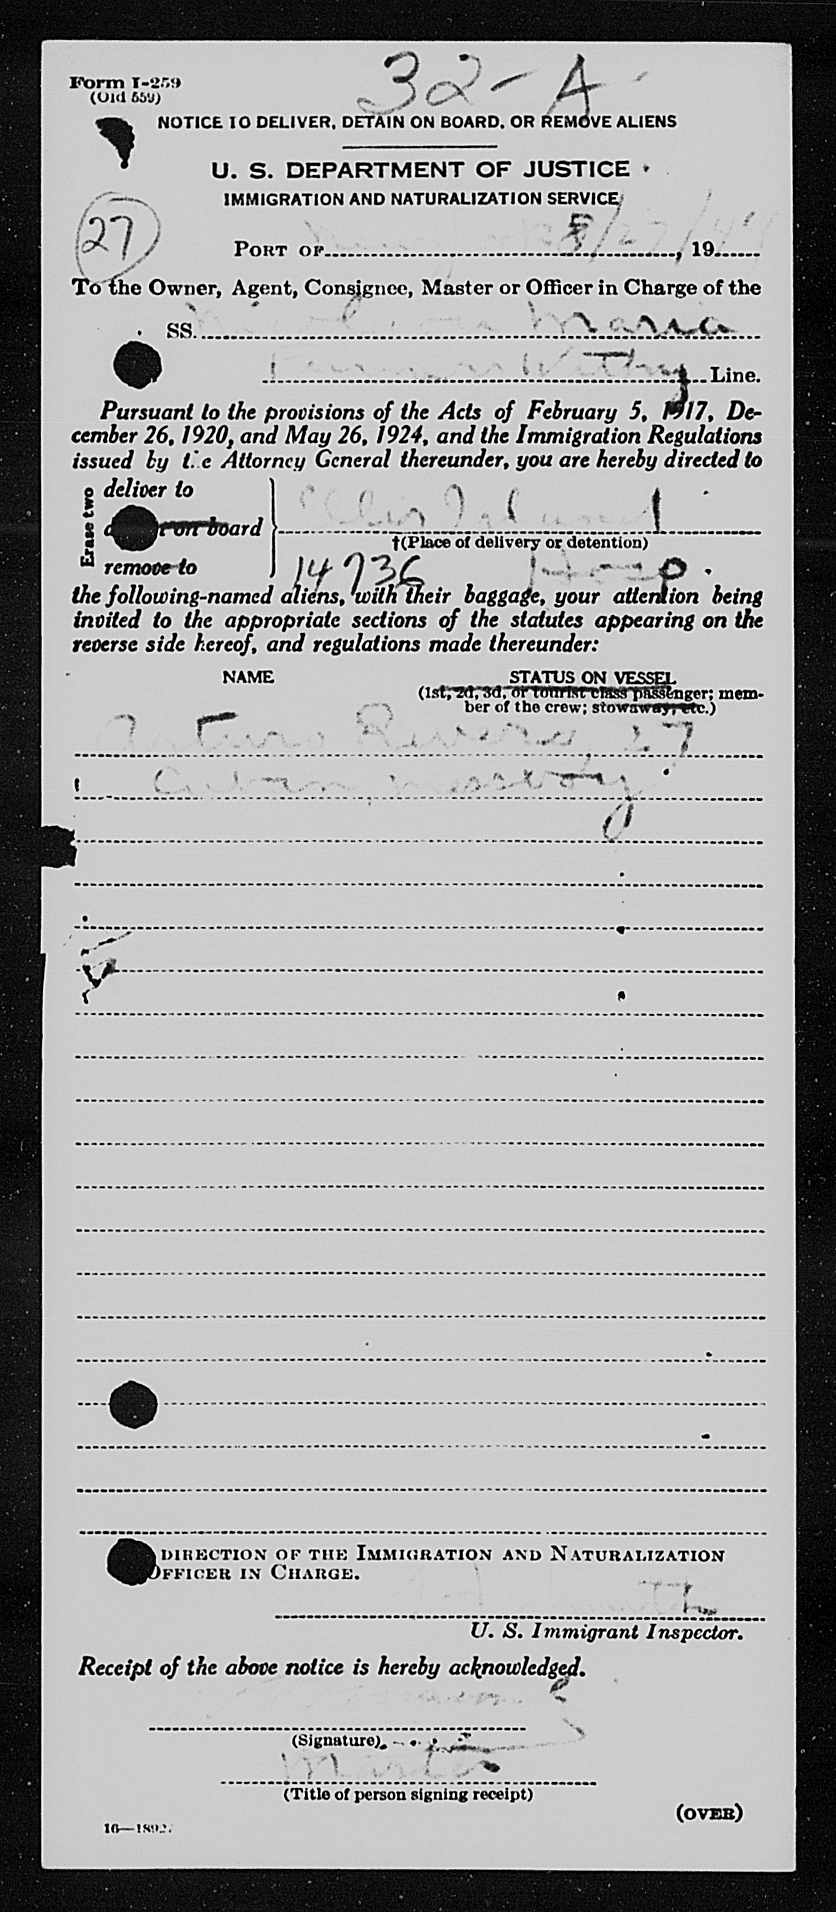 32-A
Form I-259
(Old 559)
NOTICE TO DELIVER, DETAIN ON BOARD, OR REMOVE ALIENS
U. S. DEPARTMENT OF JUSTICE
IMMIGRATION AND NATURALIZATION SERVICE
27
PORT OF 5/27/44, 19
To the Owner, Agent, Consignee, Master or Officer in Charge of the
SS. Maria
Line.
Pursuant to the provisions of the Acts of February 5, 1917, De-
cember 26, 1920, and May 26, 1924, and the Immigration Regulations
issued by the Attorney General thereunder, you are hereby directed to
Erase two
deliver to
on board
remove to
Ellis Island
†(Place of delivery or detention)
14736 Hosp.
the following-named aliens, with their baggage, your attention being
invited to the appropriate sections of the statutes appearing on the
reverse side hereof, and regulations made thereunder:
NAME STATUS ON VESSEL
(1st, 2d, 3d, or tourist class passenger; mem-
ber of the crew; stowaway, etc.)
Arturo Rivera, 27
Cuban, messboy
DIRECTION OF THE IMMIGRATION AND NATURALIZATION
OFFICER IN CHARGE.
U. S. Immigrant Inspector.
Receipt of the above notice is hereby acknowledged.
(Signature)
Master
(Title of person signing receipt)
(OVER)